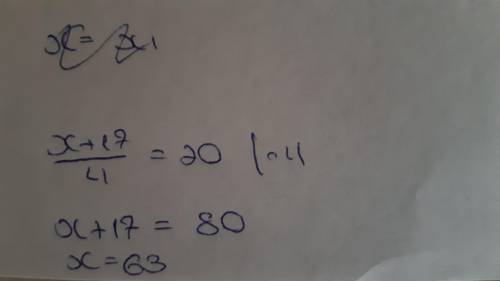 x+17/4 = 20 |·4
x+17 = 80
x=63